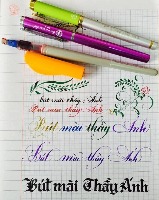 Bút mài thầy Ánh
Bút mài thầy Ánh
Bút mài thầy Ánh
Bút mài thầy Ánh
Bút mài Thầy Ánh